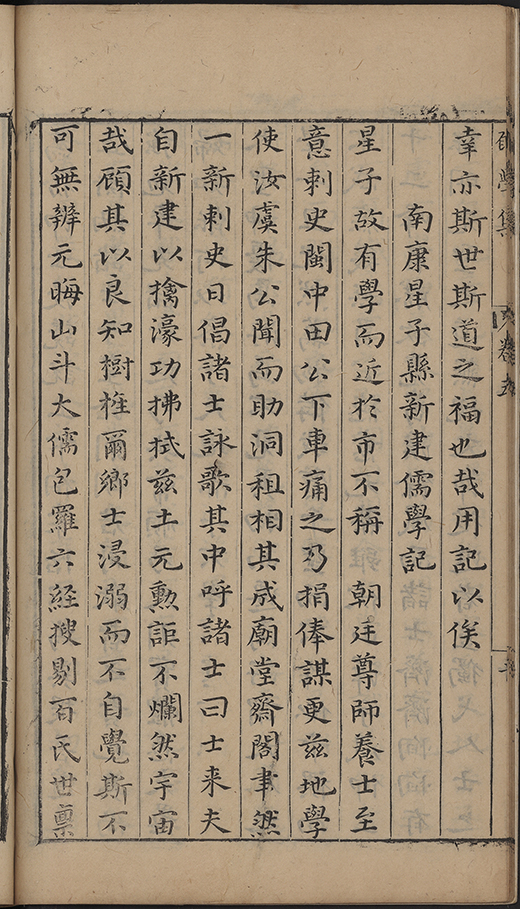 卷五
幸亦斯世斯道之福也哉用記以俟
南康星子縣新建儒學記
星子故有學而近於市不稱 朝廷尊師養士至
意刺史閩中田公下車痛之乃捐俸謀更茲地學
使汝虞朱公聞而助洞租相其成廟堂齋閣聿然
一新刺史日倡諸士詠歌其中呼諸士曰士来夫
自新建以擒濠功拂拭茲土元勲詎不爛然宇宙
哉顧其以良知樹椎爾鄉士浸溺而不自覺斯不
可無辨元晦山斗大儒包羅六經搜剔百氏世稟